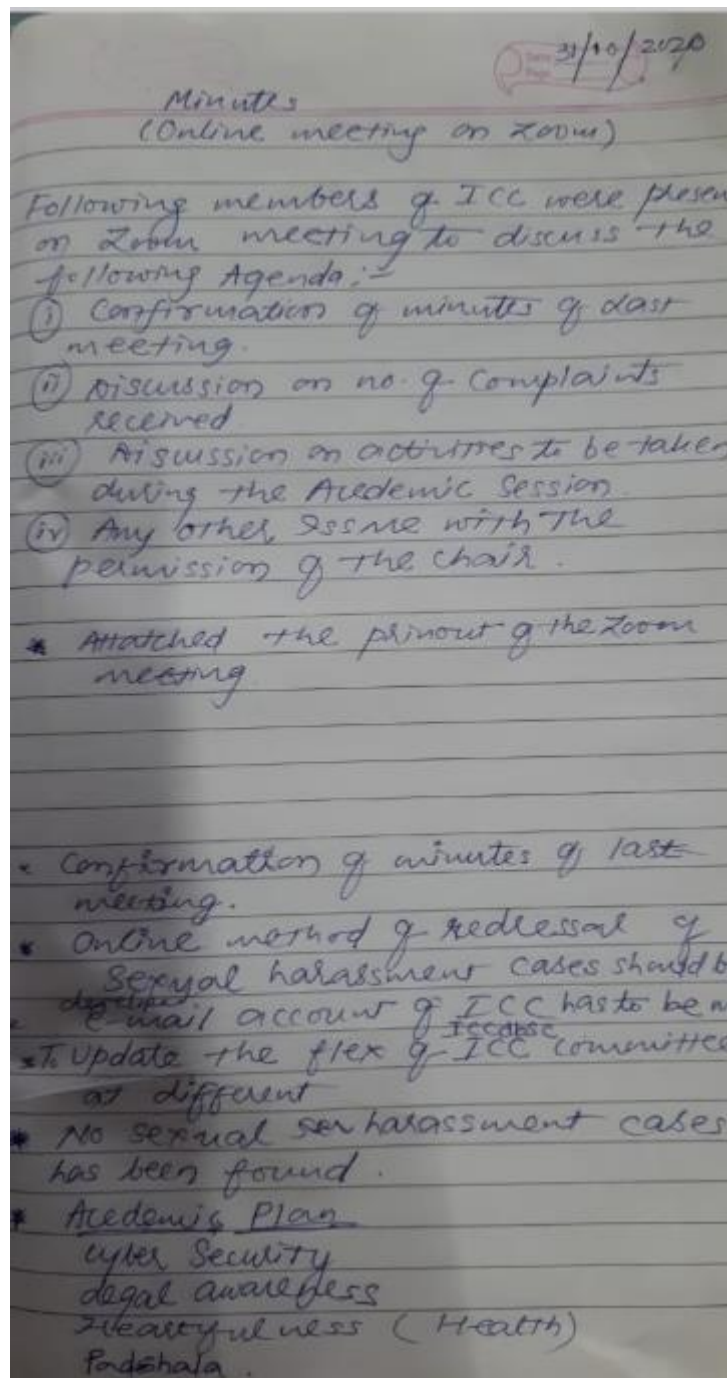 31/10/2020
Minutes
(Online meeting on Zoom)
Following members of ICC were presen
on Zoom meeting to discuss the
following Agenda :-
(i) Confirmation of minutes of last
meeting.
(ii) Discussion on no. of Complaints
received
(iii) Discussion on activities to be taken
during the Acedemic Session
(iv) Any other Issue with the
permission of the chair.
* Attatched the prinout of the Zoom
meeting
* Confirmation of minutes of last
meeting.
* Online method of redressal of
Sexual harassment cases should b
developed
e-mail account of ICC has to be m
* To Update the flex of ICC committee
at different
* No sexual harassment cases
has been found.
* Acedemic Plan
Cyber Security
Legal awareness
(Health)
Padshala.